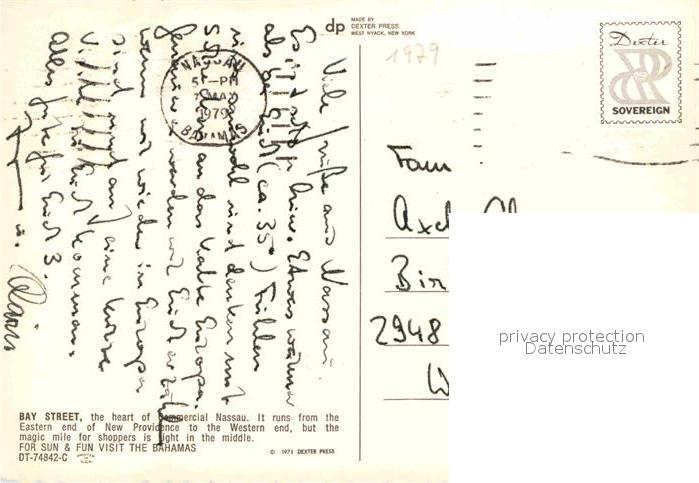 Viele Grüße aus Nassau.
Es ist hier. Etwas wärmer
als bei Euch (ca. 35°) Fühlen
wohl und denken mit
an das kalte Europa.
werden wir Euch
wenn wir wieder in Europa
sind und auf eine kurze
zu Euch kommen.
Alles Gute für Euch 3.
u.
NASSAU
5-PM
7 MAY
1979
BAHAMAS
dp MADE BY
DEXTER PRESS
WEST NYACK, NEW YORK
1979
Dexter
SOVEREIGN
Fam
Axel
Bir
2948
W
privacy protection
Datenschutz
BAY STREET, the heart of commercial Nassau. It runs from the
Eastern end of New Providence to the Western end, but the
magic mile for shoppers is right in the middle.
FOR SUN & FUN VISIT THE BAHAMAS
DT-74842-C
© 1973 DEXTER PRESS